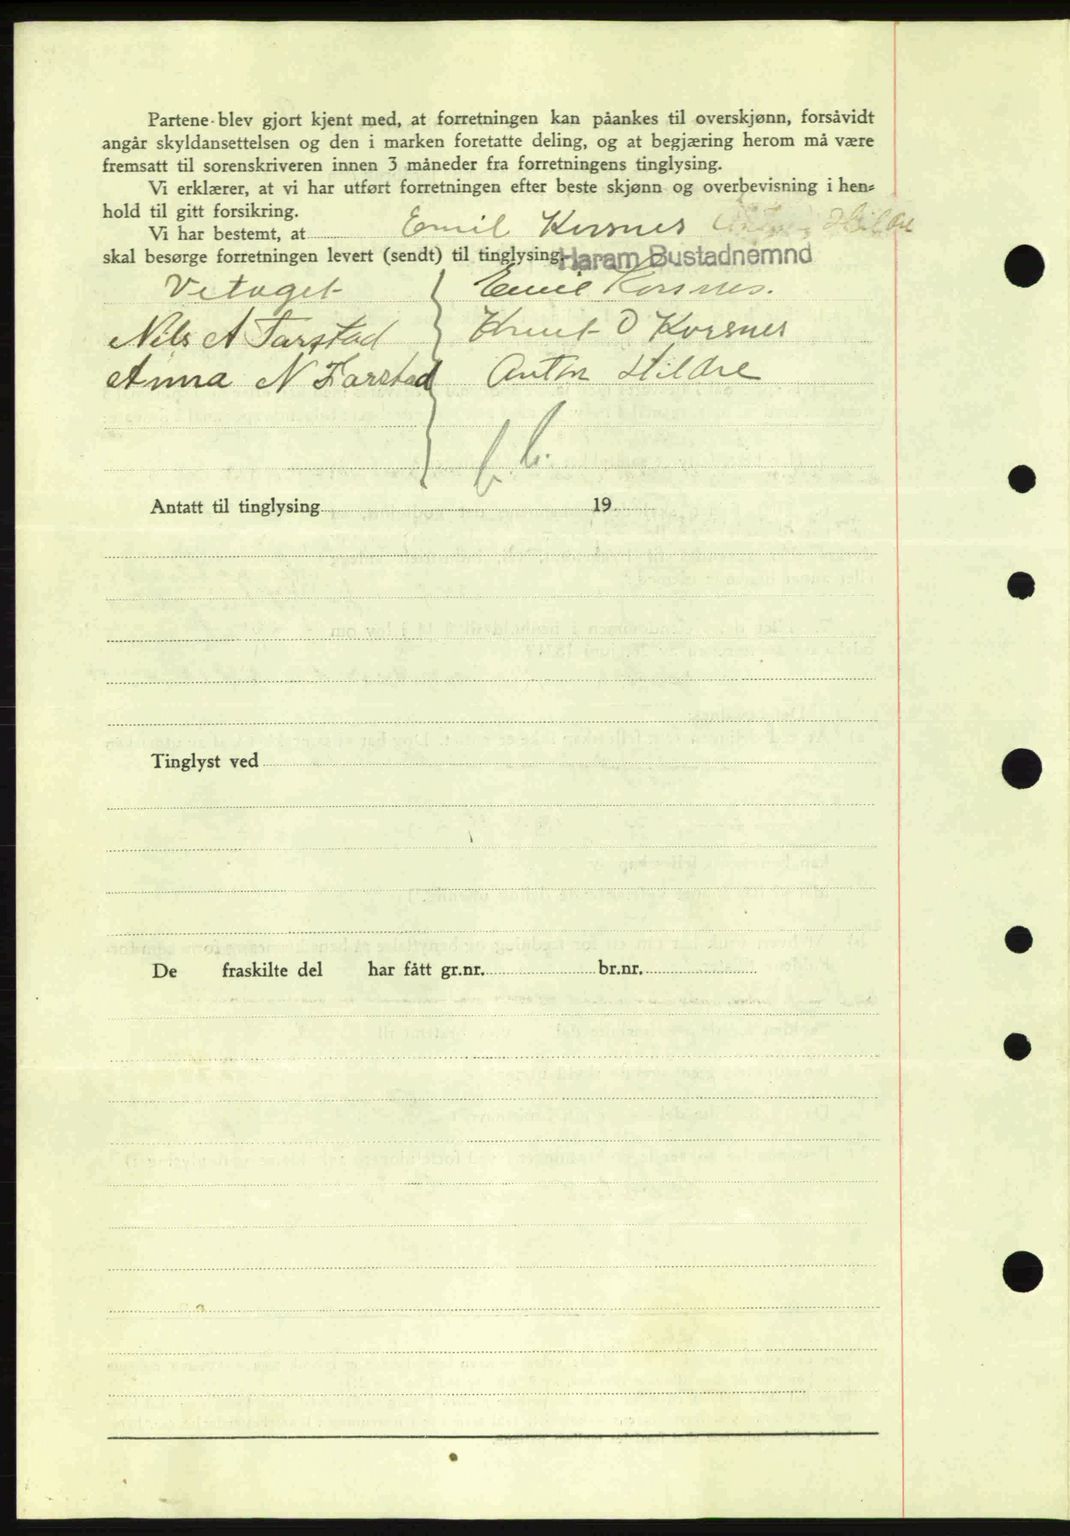 Partene blev gjort kjent med, at forretningen kan påankes til overskjønn, forsåvidt
angår skyldansettelsen og den i marken foretatte deling, og at begjæring herom må være
fremsatt til sorenskriveren innen 3 måneder fra forretningens tinglysing.
Vi erklærer, at vi har utført forretningen efter beste skjønn og overbevisning i hen=
hold til gitt forsikring.
Vi har bestemt, at Emil Korsnes Anton Hildre
skal besørge forretningen levert (sendt) til tinglysing. Haram Bustadnemnd
Vetaget Emil Korsnes.
Nils A Farstad Knut O Korsnes
Anna N Farstad Anton Hildre
Antatt til tinglysing 19
Tinglyst ved
De fraskilte del har fått gr.nr. br.nr.